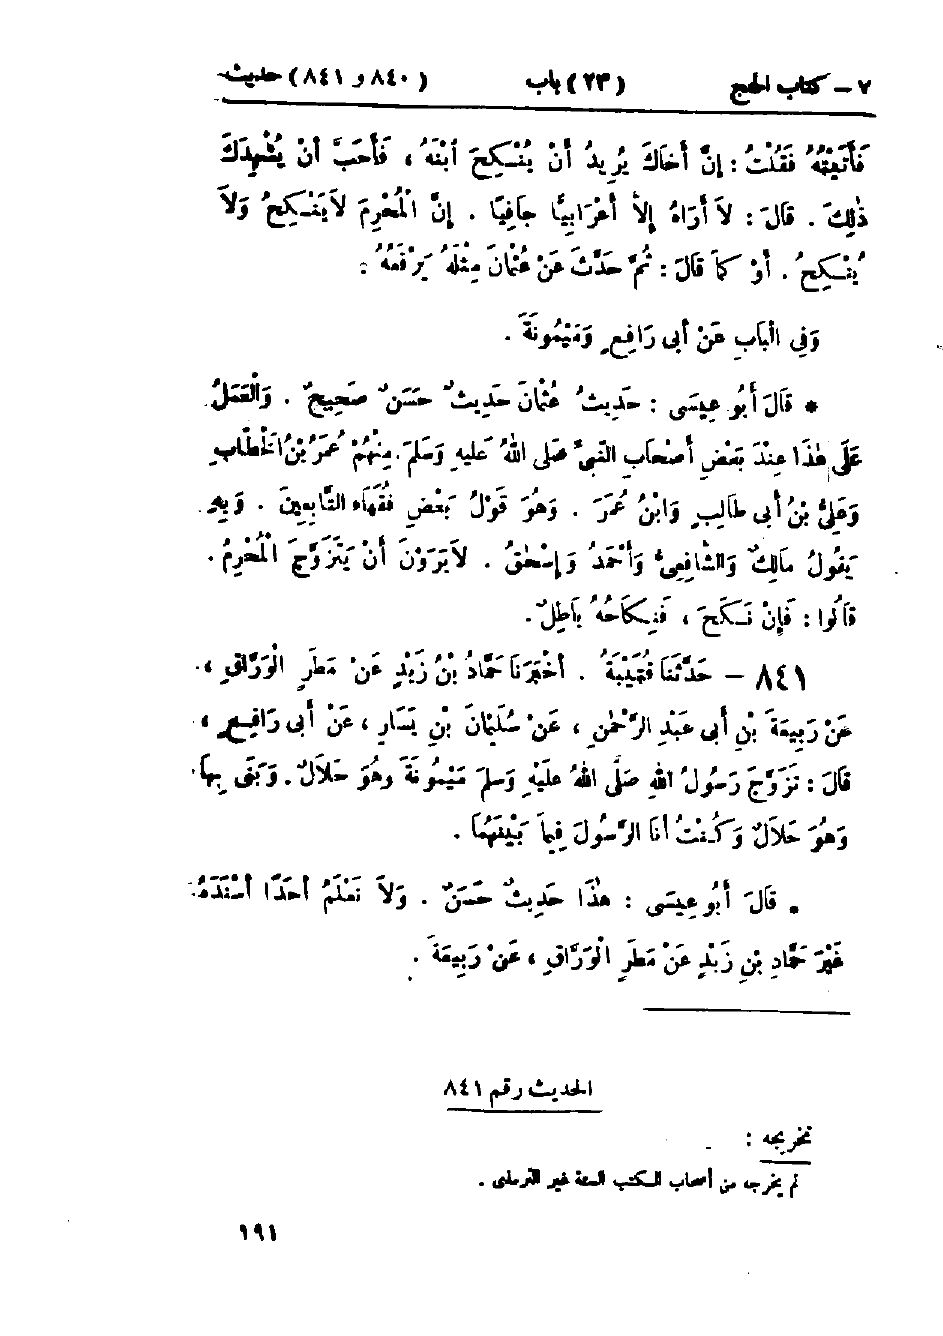 ٧ – كتاب الحج (٢٣) باب (٨٤٠ و ٨٤١) حديث
فَأَتَيْتُهُ فَقُلْتُ : إِنَّ أَخَاكَ يُرِيدُ أَنْ يُنْكِحَ ابْنَهُ ، فَأَحَبَّ أَنْ يُشْهِدَكَ
ذٰلِكَ . قَالَ : لاَ أُرَاهُ إِلاَّ أَعْرَابِيًّا جَافِيًا . إِنَّ الْمُحْرِمَ لاَ يَنْكِحُ وَلاَ
يُنْكِحُ . أَوْ كَمَا قَالَ : ثُمَّ حَدَّثَ عَنْ عُثْمَانَ مِثْلَهُ يَرْفَعُهُ :
وَفِي الْبَابِ عَنْ أَبِى رَافِعٍ وَمَيْمُونَةَ .
* قَالَ أَبُو عِيسَى : حَدِيثُ عُثْمَانَ حَدِيثٌ حَسَنٌ صَحِيحٌ . وَالْعَمَلُ
عَلَى هٰذَا عِنْدَ بَعْضِ أَصْحَابِ النَّبِىِّ صَلَّى اللهُ عَلَيْهِ وَسَلَّمَ . مِنْهُمْ عُمَرُ بْنُ الْخَطَّابِ
وَعَلِىُّ بْنُ أَبِى طَالِبٍ وَابْنُ عُمَرَ . وَهُوَ قَوْلُ بَعْضِ فُقَهَاءِ التَّابِعِينَ . وَبِهِ
يَقُولُ مَالِكٌ وَالشَّافِعِىُّ وَأَحْمَدُ وَإِسْحٰقُ . لاَ يَرَوْنَ أَنْ يَتَزَوَّجَ الْمُحْرِمُ .
قَالُوا : فَإِنْ نَكَحَ ، فَنِكَاحُهُ بَاطِلٌ .
٨٤١ – حَدَّثَنَا قُتَيْبَةُ . أَخْبَرَنَا حَمَّادُ بْنُ زَيْدٍ عَنْ مَطَرٍ الْوَرَّاقِ ،
عَنْ رَبِيعَةَ بْنِ أَبِى عَبْدِ الرَّحْمٰنِ ، عَنْ سُلَيْمَانَ بْنِ يَسَارٍ ، عَنْ أَبِى رَافِعٍ ،
قَالَ : تَزَوَّجَ رَسُولُ اللهِ صَلَّى اللهُ عَلَيْهِ وَسَلَّمَ مَيْمُونَةَ وَهُوَ حَلاَلٌ . وَبَنَى بِهَا
وَهُوَ حَلاَلٌ وَكُنْتُ أَنَا الرَّسُولَ فِيمَا بَيْنَهُمَا .
* قَالَ أَبُو عِيسَى : هٰذَا حَدِيثٌ حَسَنٌ . وَلاَ نَعْلَمُ أَحَدًا أَسْنَدَهُ
غَيْرَ حَمَّادِ بْنِ زَيْدٍ عَنْ مَطَرٍ الْوَرَّاقِ ، عَنْ رَبِيعَةَ .
الحديث رقم ٨٤١
تخريجه :
لم يخرجه من أصحاب الكتب الستة غير الترمذى .
١٩١